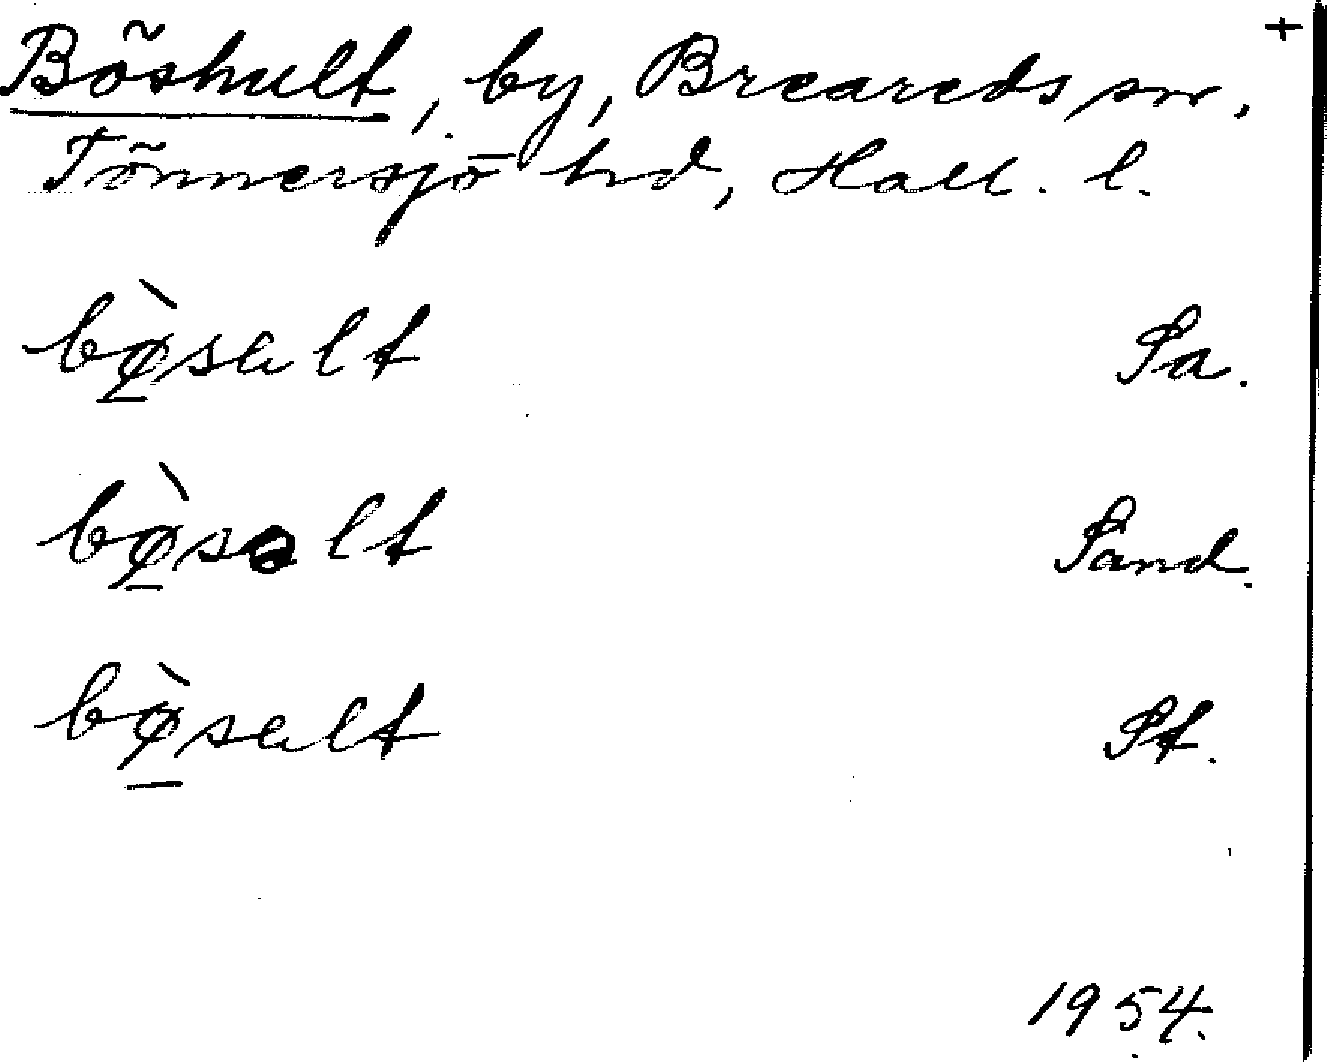 +
Böshult, by, Breareds sn,
Tönnersjö hd, Hall. l.
bø̠̀salt Sa.
bø̠̀sɵlt Sand.
bø̠̀salt St.
1954.